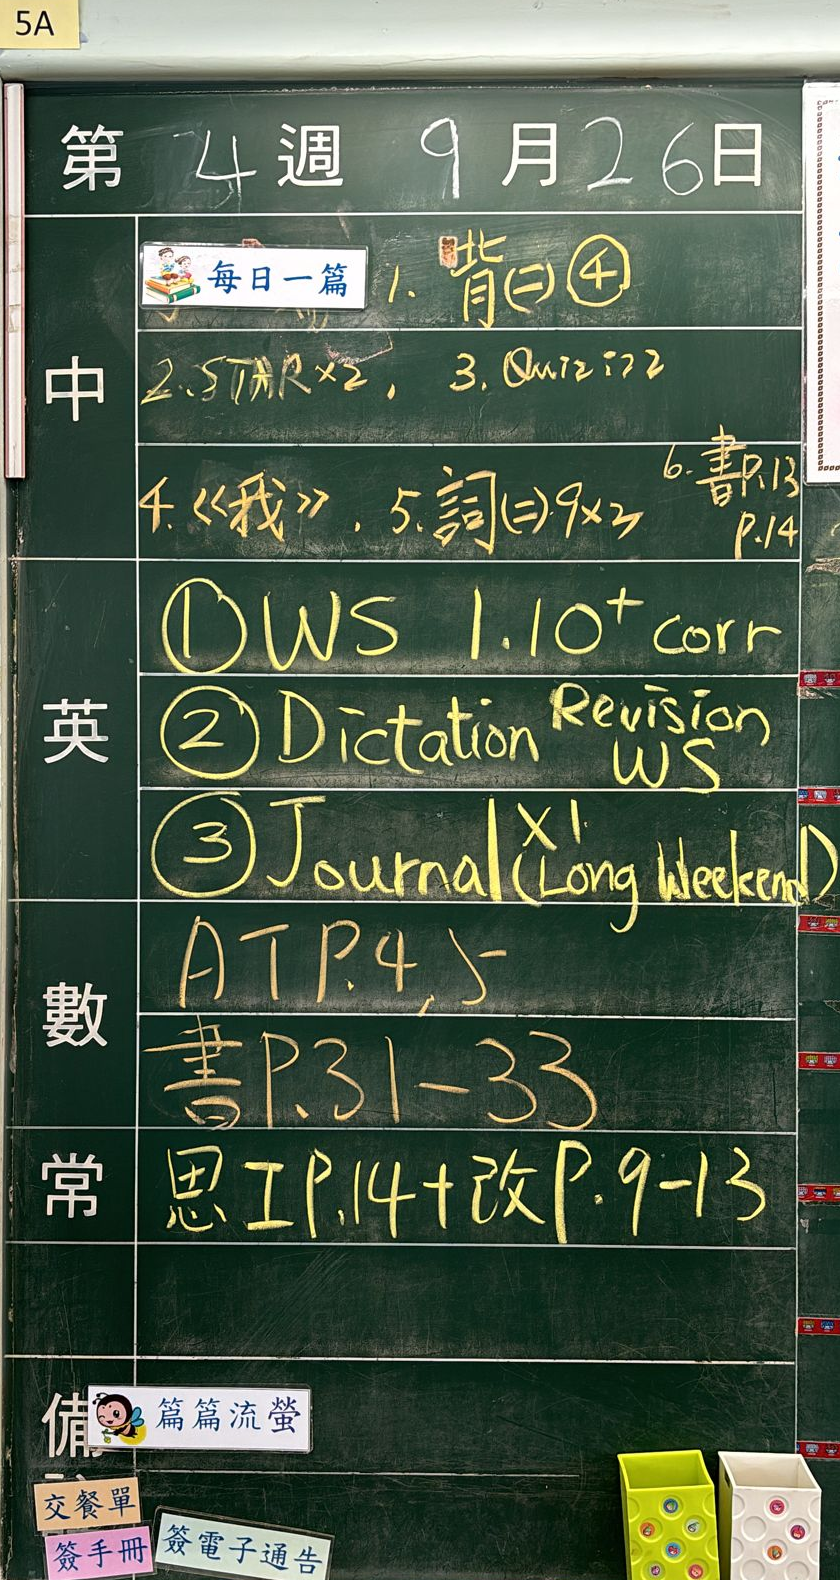 5A
第 4 週 9 月 26 日
中
每日一篇 1. 背(二)④
2. STAR×2, 3. Quizizz
4.《我》. 5. 詞(二) 9×2 6. 書P.13 P.14
英
① WS 1.10+ corr
② Dictation Revision WS
③ Journal X1 (Long Weekend)
數
AT P.4,5
書P.31-33
常
思工P.14+改P.9-13
備
篇篇流螢
交餐單
簽手冊
簽電子通告